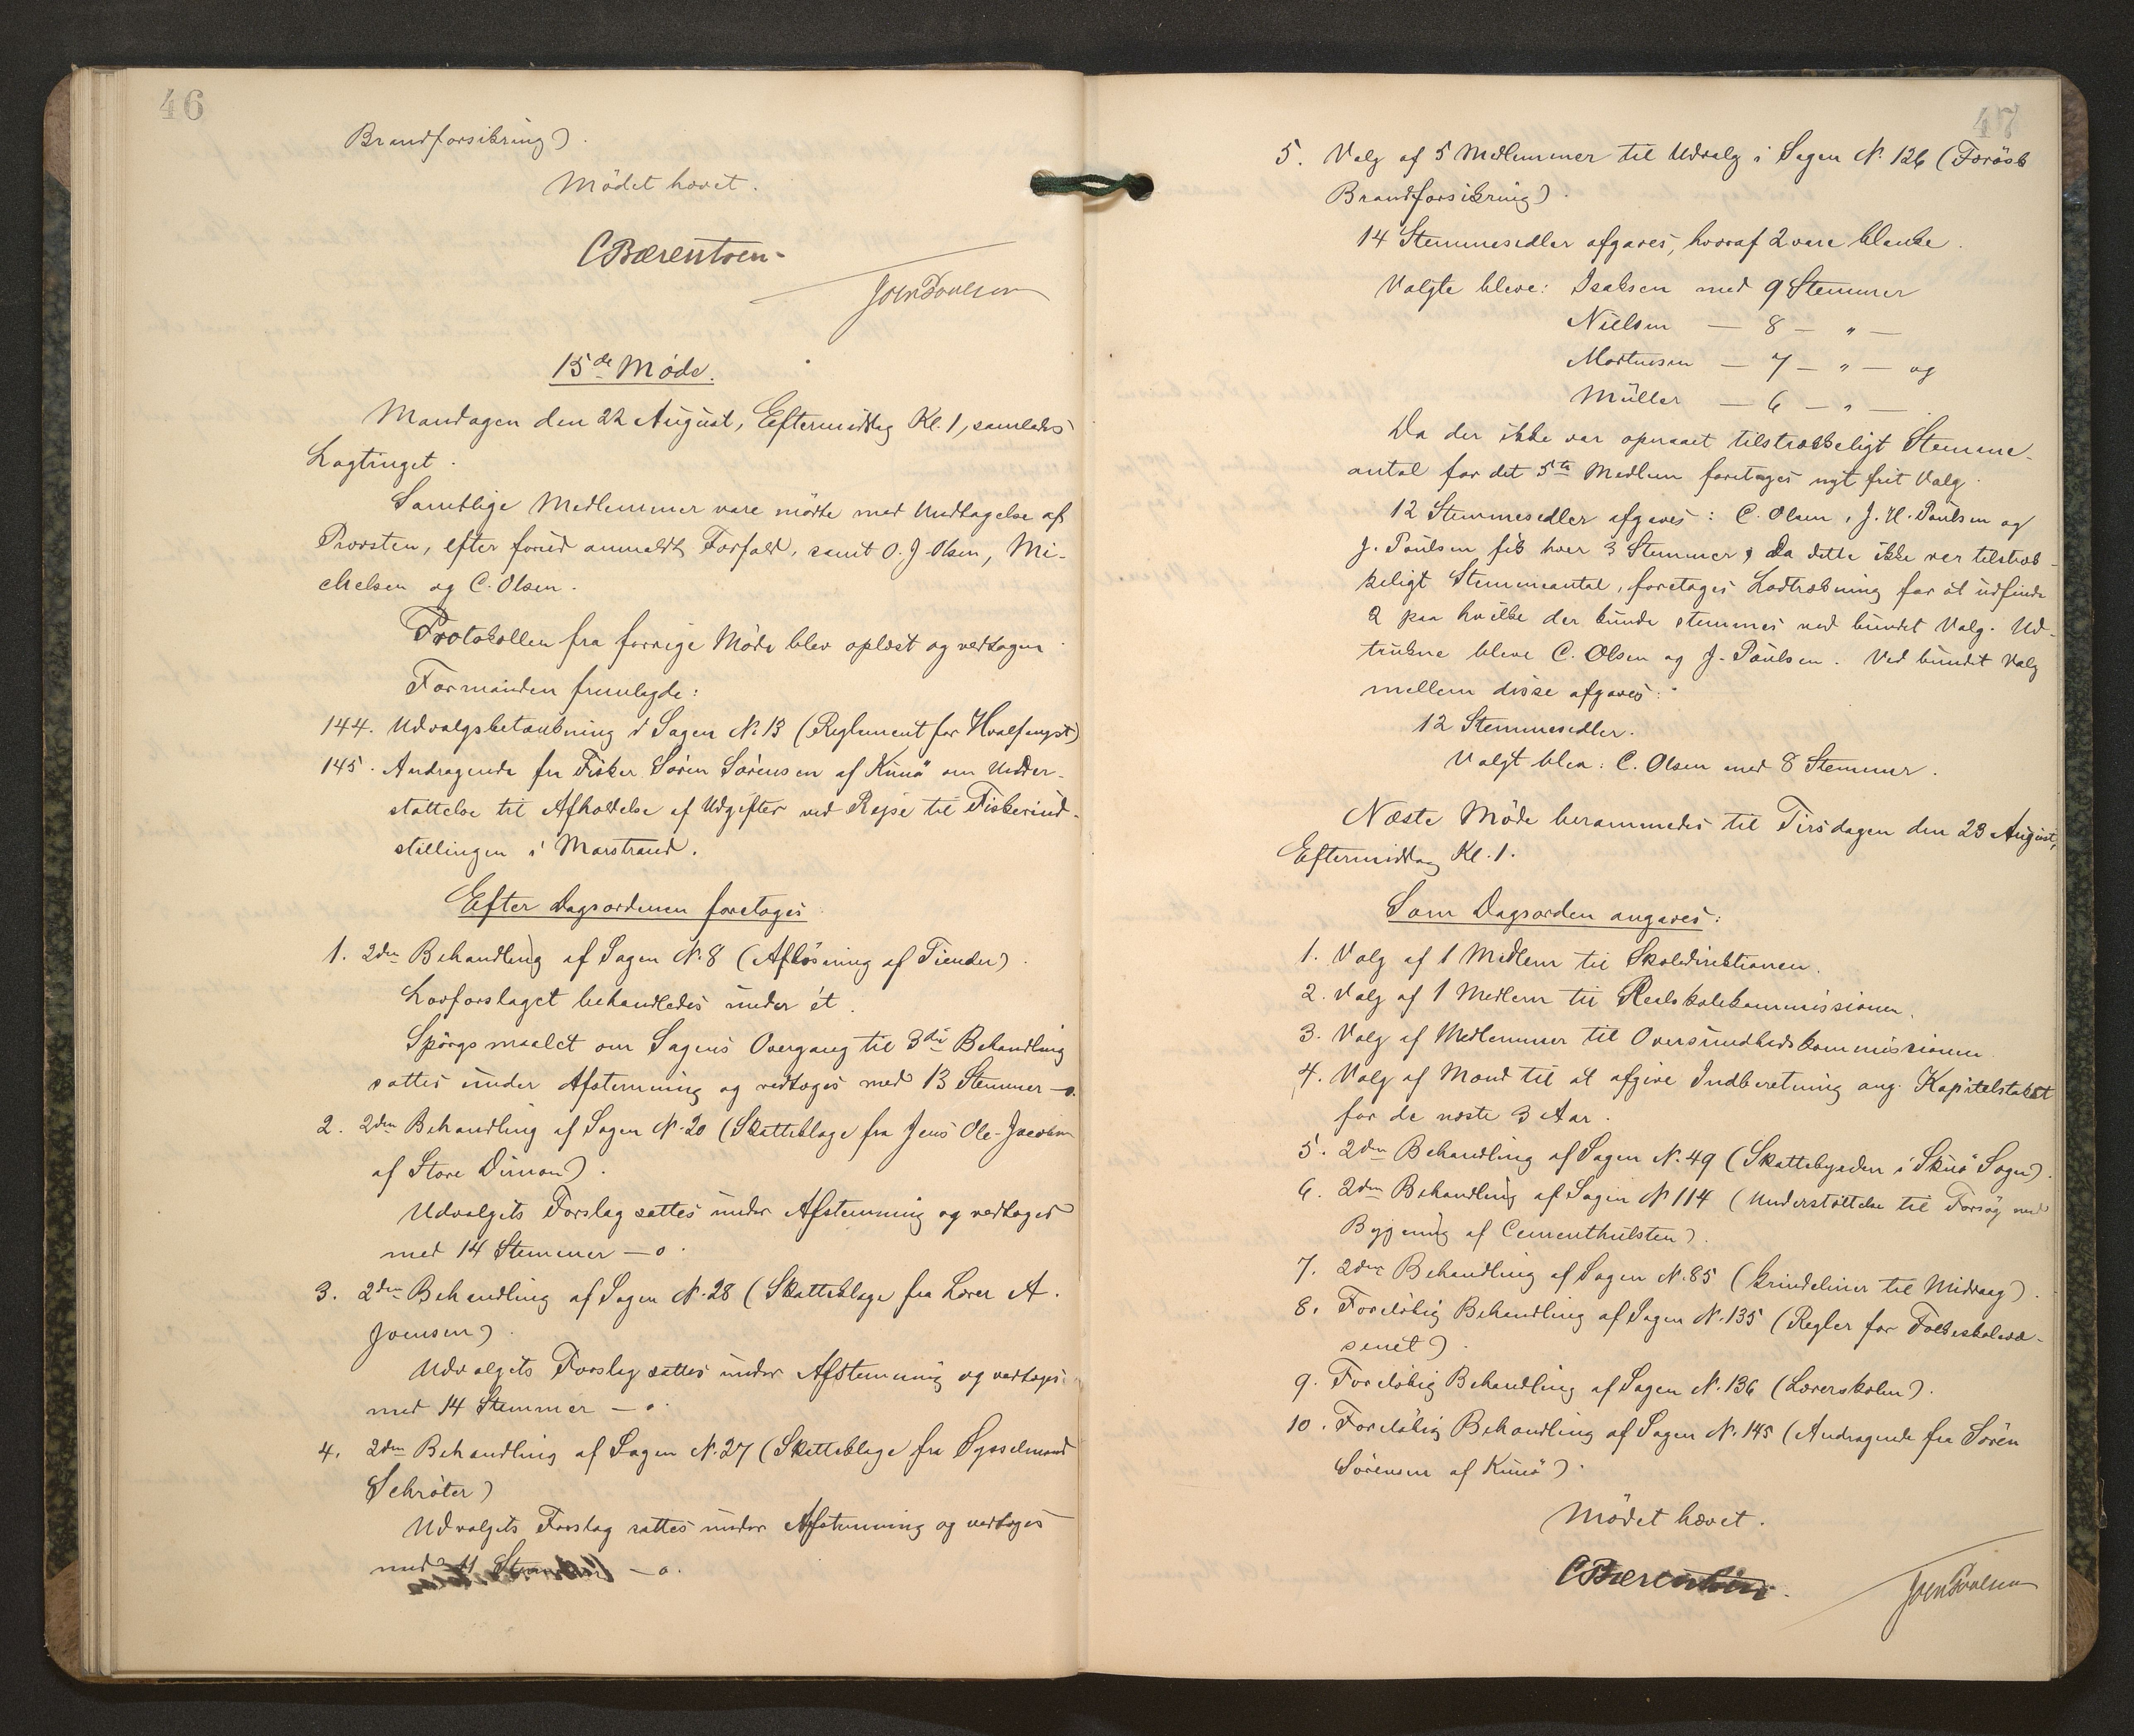 46
Brandforsikring).
Mödet hævet.
CBærentsen-
Joen Poulsen
15de Möde.
Mandagen den 22 August, Eftermiddag Kl. 1, samledes
Lagtinget.
Samtlige Medlemmer vare mödte med Undtagelse af
Provsten, efter forud anmeldt Forfald, samt O. J. Olsen, Mi-
chelsen og C. Olsen.
Protokollen fra forrige Möde blev oplæst og vedtagen.
Formanden fremlagde:
144. Udvalgsbetænkning i Sagen N. 13 (Reglement for Hvalfangst)
145. Andragende fra Fisker Sören Sörensen af Kunö om Under-
stöttelse til Afholdelse af Udgifter ved Rejse til Fiskeriud-
stillingen i Marstrand.
Efter Dagsordenen foretoges:
1. 2den Behandling af Sagen N. 8 (Aflösning af Tiender).
Lovforslaget behandledes under ét.
Spörgsmaalet om Sagens Overgang til 3die Behandling
sattes under Afstemning og vedtoges med 13 Stemmer - o.
2. 2den Behandling af Sagen N. 20 (Skatteklage fra Jens Ole Jacobsen
af Store Dimon).
Udvalgets Forslag sattes under Afstemning og vedtoges
med 14 Stemmer - o.
3. 2den Behandling af Sagen N. 28 (Skatteklage fra Lærer A.
Joensen).
Udvalgets Forslag sattes under Afstemning og vedtoges
med 14 Stemmer - o.
4. 2den Behandling af Sagen N. 27 (Skatteklage fra Sysselmand
Schröter)
Udvalgets Forslag sattes under Afstemning og vedtoges
med 11 - o.
47
5. Valg af 5 Medlemmer til Udvalg i Sagen N. 126 (Færösk
Brandforsikring).
14 Stemmesedler afgaves, hvoraf 2 vare blanke.
Valgte bleve: Isaksen med 9 Stemmer
Nielsen — 8 — " —
Mortensen — 7 — " — og
Müller — 6 — " —
Da der ikke var opnaaet tilstrækkeligt Stemme-
antal for det 5te Medlem foretoges nyt frit Valg.
12 Stemmesedler afgaves: C. Olsen, J. H. Poulsen og
J. Poulsen fik hver 3 Stemmer, Da dette ikke var tilstræk-
keligt Stemmeantal, foretoges Lodtrækning for at udfinde
2 paa hvilke der kunde stemmes ved bundet Valg. Ud-
trukne bleve C. Olsen og J. Poulsen. Ved bundet Valg
mellem disse afgaves:
12 Stemmesedler.
Valgt blev: C. Olsen med 8 Stemmer.
Næste Möde berammedes til Tirsdagen den 23 August,
Eftermiddag Kl. 1.
Som Dagsorden angaves:
1. Valg af 1 Medlem til Skoledirektionen.
2. Valg af 1 Medlem til Realskolekommissionen.
3. Valg af Medlemmer til Oversundhedskommissionen
4. Valg af Mand til at afgive Indberetning ang. Kapitelstakst
for de næste 3 Aar.
5. 2den Behandling af Sagen N. 49 (Skattebyrden i Skuö Sogn).
6. 2den Behandling af Sagen N 114 (Understöttelse til Forsög med
Bygning af Cementhulsten).
7. 2den Behandling af Sagen N. 85 (Grindeliner til Midvaag).
8. Forelöbig Behandling af Sagen N. 135 (Regler for Folkeskolevæ-
senet).
9. Forelöbig Behandling af Sagen N. 136 (Lærerskolen).
10. Forelöbig Behandling af Sagen N. 145 (Andragende fra Sören
Sörensen af Kunö).
Mödet hævet.
CBærentsen.
Joen Poulsen